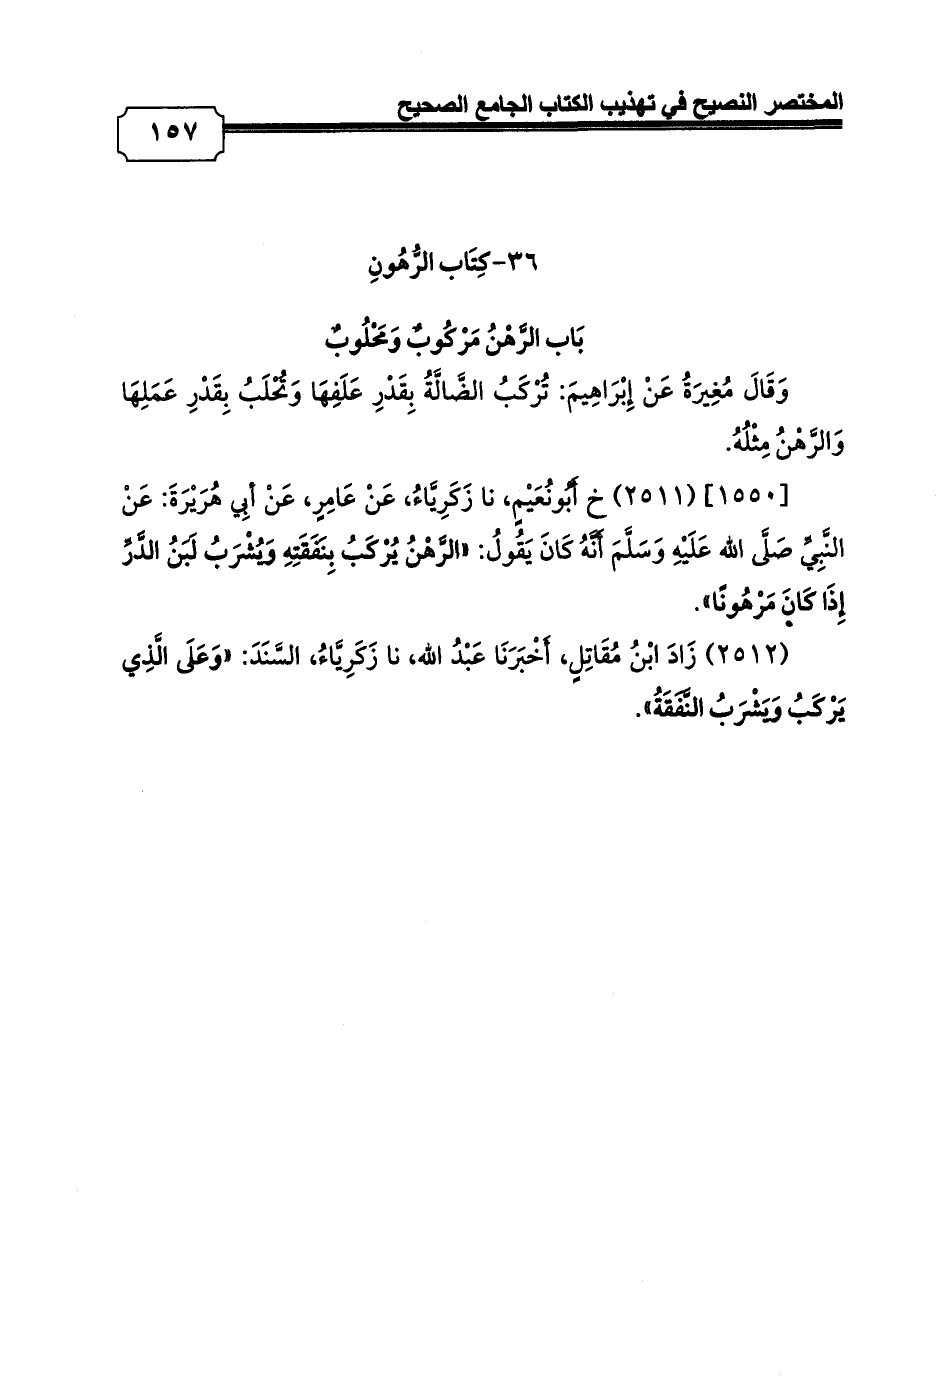 المختصر النصيح في تهذيب الكتاب الجامع الصحيح
١٥٧
٣٦- كِتَاب الرُّهُونِ
بَاب الرَّهْنُ مَرْكُوبٌ وَمَحْلُوبٌ
وَقَالَ مُغِيرَةُ عَنْ إِبْرَاهِيمَ: تُرْكَبُ الضَّالَّةُ بِقَدْرِ عَلَفِهَا وَتُحْلَبُ بِقَدْرِ عَمَلِهَا
وَالرَّهْنُ مِثْلُهُ.
[١٥٥٠] (٢٥١١) خ أَبُونُعَيْمٍ، نا زَكَرِيَّاءُ، عَنْ عَامِرٍ، عَنْ أبِي هُرَيْرَةَ: عَنْ
النَّبِيِّ صَلَّى الله عَلَيْهِ وَسَلَّمَ أَنَّهُ كَانَ يَقُولُ: «الرَّهْنُ يُرْكَبُ بِنَفَقَتِهِ وَيُشْرَبُ لَبَنُ الدَّرِّ
إِذَا كَانَ مَرْهُونًا».
(٢٥١٢) زَادَ ابْنُ مُقَاتِلٍ، أَخْبَرَنَا عَبْدُ الله، نا زَكَرِيَّاءُ، السَّنَدَ: «وَعَلَى الَّذِي
يَرْكَبُ وَيَشْرَبُ النَّفَقَةُ».